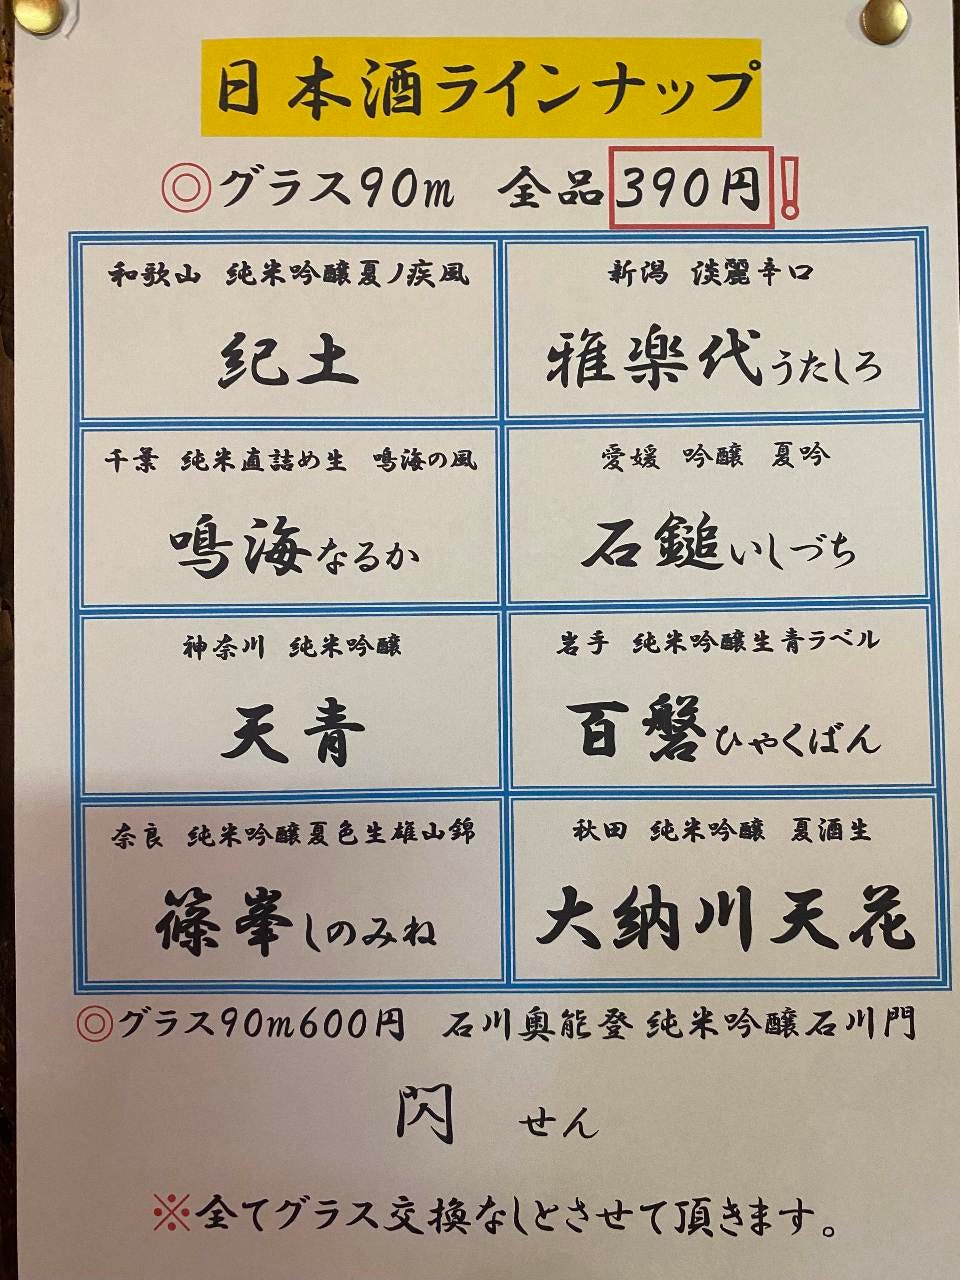 日本酒ラインナップ
◎グラス90m 全品390円!
和歌山 純米吟醸夏ノ疾風
紀土
新潟 淡麗辛口
雅楽代うたしろ
千葉 純米直詰め生 鳴海の風
鳴海なるか
愛媛 吟醸 夏吟
石鎚いしづち
神奈川 純米吟醸
天青
岩手 純米吟醸生青ラベル
百磐ひゃくばん
奈良 純米吟醸夏色生雄山錦
篠峯しのみね
秋田 純米吟醸 夏酒生
大納川天花
◎グラス90m600円 石川奥能登純米吟醸石川門
閃 せん
※全てグラス交換なしとさせて頂きます。